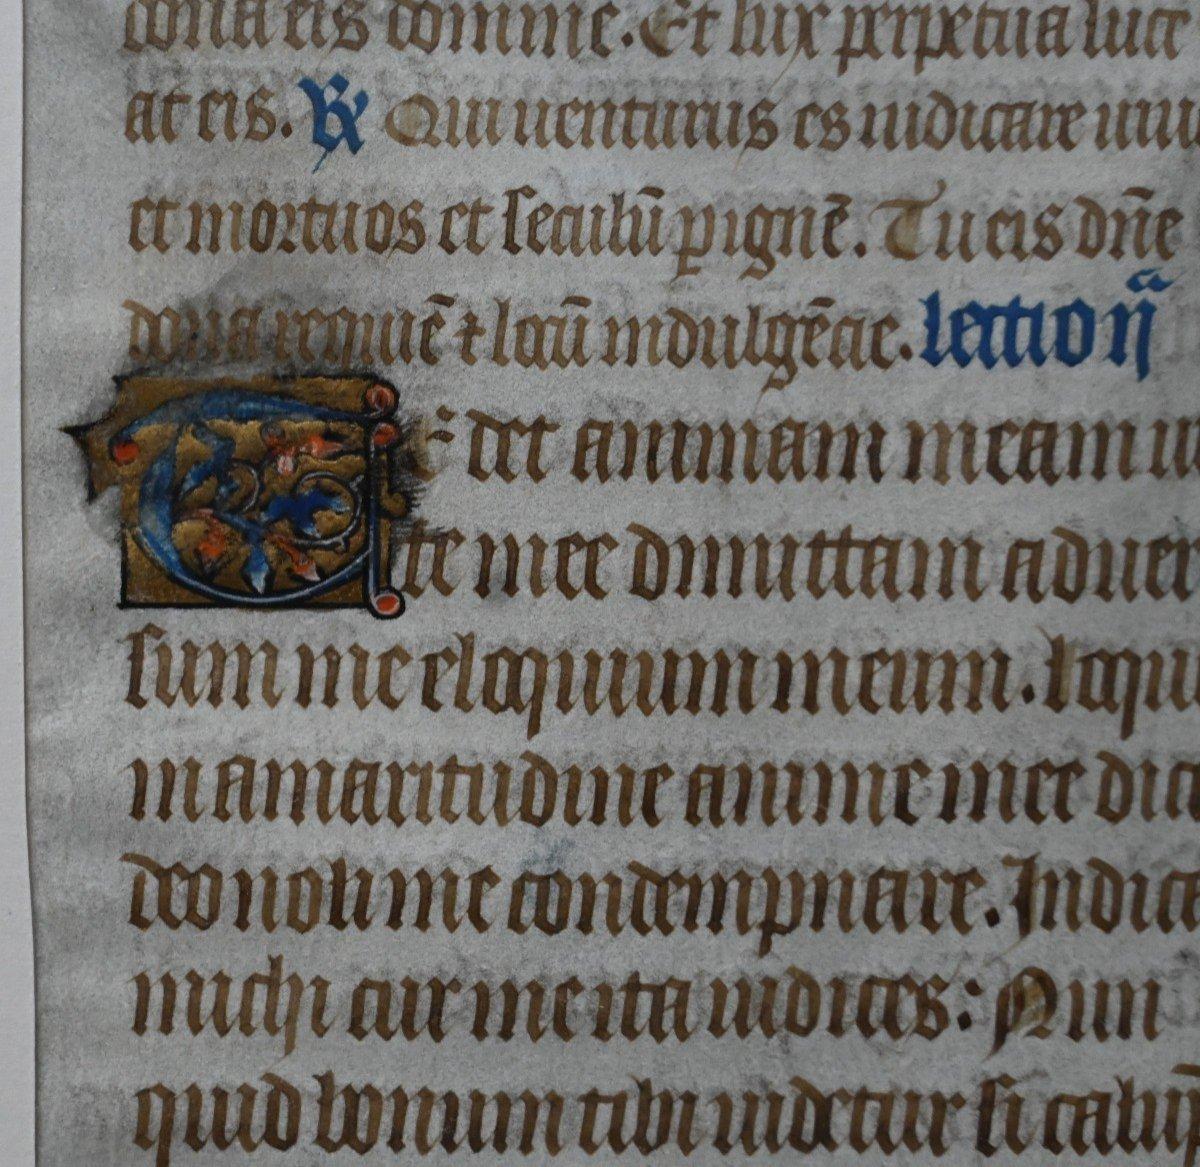 dona eis domine. Et lux perpetua luce
at eis. ℟ Qui uenturus es iudicare uiu
et mortuos et seculū p ignē. Tu eis dn̄e
dona requiē ⁊ locū indulgēcie. lectio ij
Tedet animam meam ui
te mee dimittam aduer
sum me eloquium meum. loqu
in amaritudine anime mee dica
deo noli me condempnare. Indica
michi cur me ita iudices: Nun
quid bonum tibi uidetur si calūp